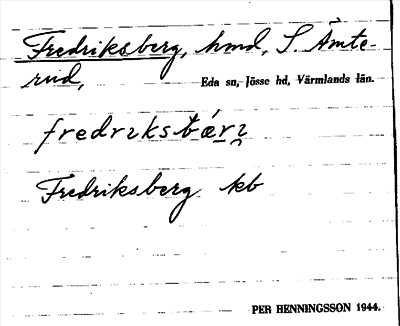 Fredriksberg, hmd, S. Åmte-
rud,
Eda sn, Jösse hd, Värmlands län.
Fredriksberg kb
PER HENNINGSSON 1944.